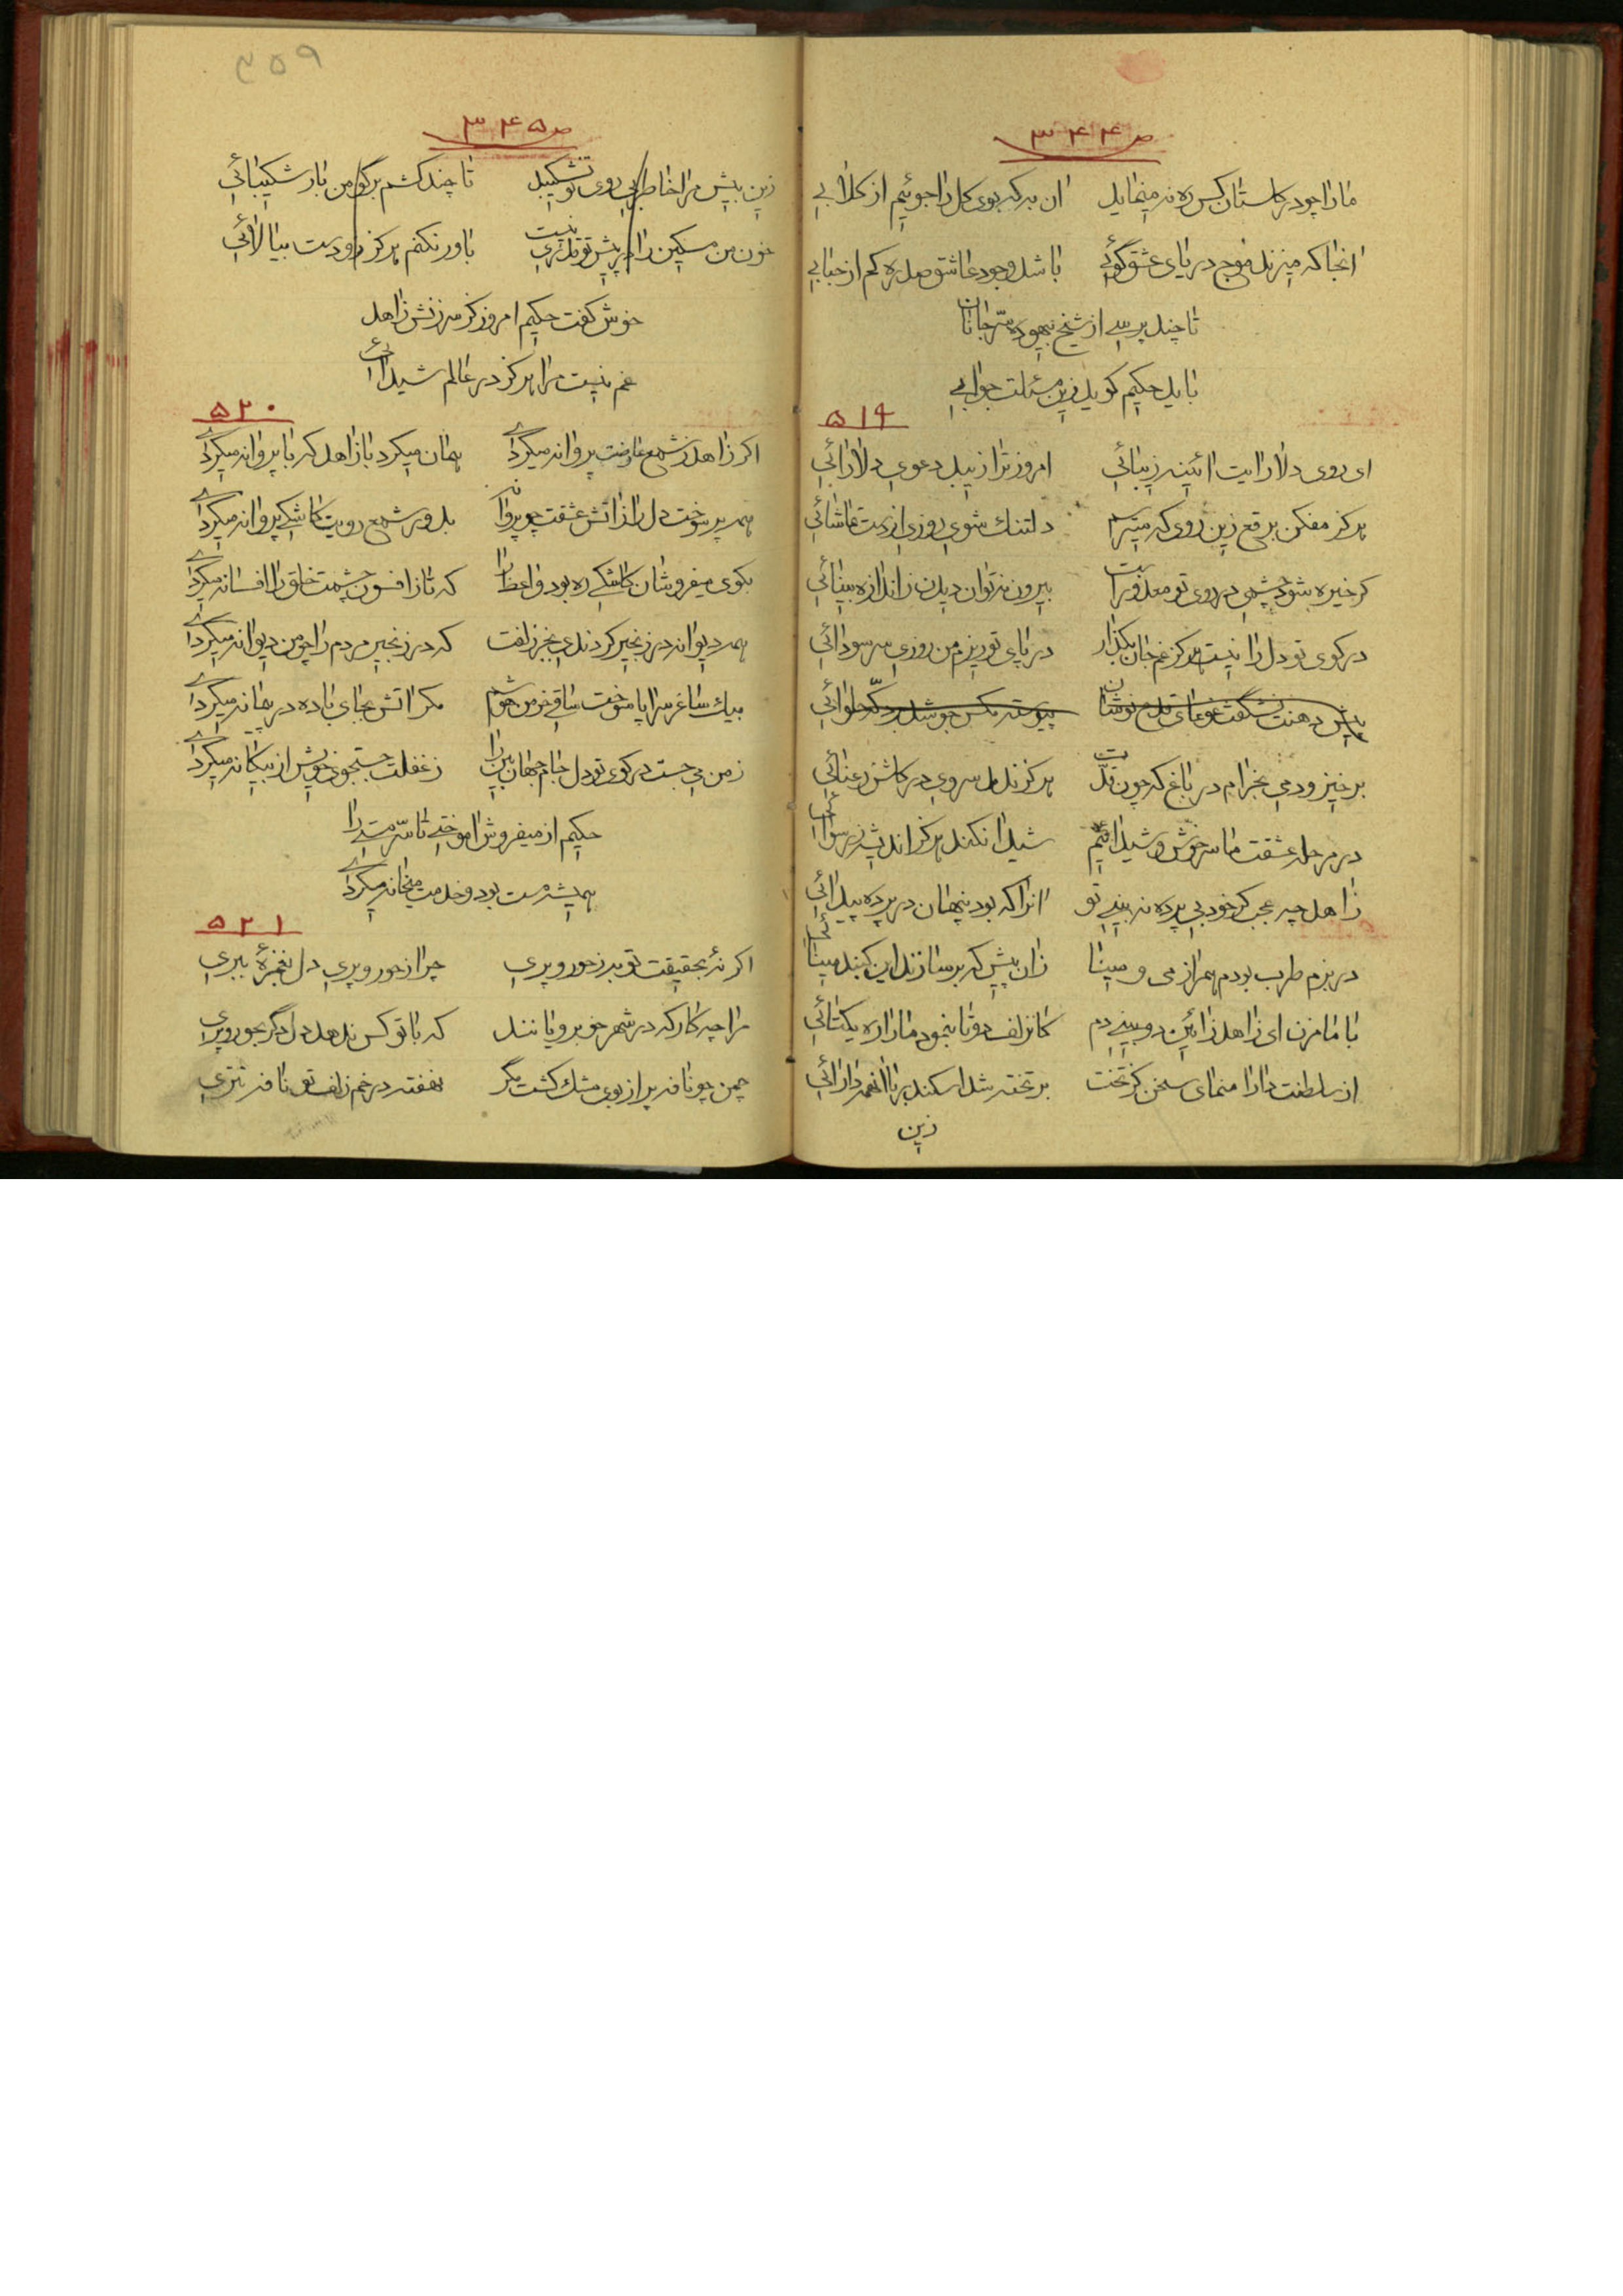 ص ۳۴۴
ما را چو در گلستان کس ره نمینماید آن به که بوی گل را جوئیم از گلابی
آنجا که میزند موج دریای عشق گوئی باشد وجود عاشق صد ره کم از حبابی
تا چند پرسی از شیخ بیهوده سر جانان
باید حکیم گوید زین مسئلت جوابی
۵۱۹
ای روی دلارایت آئینه زیبائی امروز ترا زیبد دعوی دلارائی
هرگز مفکن برقع زین روی که میترسم دلتنگ شوی روزی از تماشائی
گر خیره شود چشمی در روی تو معذور است بیرون نتوان دیدن ز اندازه بینائی
در کوی تو دل را نیست هرگز غم جان بگذار در پای تو ریزم من روزی سر سودائی
پیش دهنت نشگفت غوغای قدح نوشان پیوسته مگس جوشد بر دکه حلوائی
برخیز و دمی بخرام در باغ که چون قدت هرگز ندمد سروی در کاشن رعنائی
در مرحله عشقت ما سرخوش و شیدائیم شیدا نکند هرگز اندیشه ز رسوائی
زاهد چه عجب گر خود بی پرده نه بینی تو آنرا که بود پنهان در پرده پیدائی
در بزم طرب بودم همراز می و مینا زان پیش که بر سازند این گنبد مینائی
با ما مزن ای زاهد زائین دو بینی دم کانزلف دو تا بنمود ما را ره یکتائی
از سلطنت دارا منمای سخن کز تخت بر تخته شد اسکندر با آنهمه دارائی
زین
۳۵۹
ص ۳۴۵
زین بیش مرا خاطر بی روی تو نشکیبد تا چند کشم بر گو من بار شکیبائی
خون من مسکین را در پیش تو قدری نیست باور نکنم هرگز تو دست بیالائی
خوش گفت حکیم امروز کز سرزنش زاهد
غم نیست مرا هرگز در عالم شیدائی
۵۲۰
اگر زاهد ز شمع عارضت پروانه میگردی همان میکرد با زاهد که با پروانه میکردی
همه پر سوخت دل را ز آتش عشقت چو پروانه بدور شمع رویت کاشکی پروانه میکردی
بکوی میفروشان کاشکی ره بود واعظ را که تا ز افسون چشمت خلق را افسانه میکردی
همه دیوانه در زنجیر کردندی بجز زلفت که در زنجیر مردم را چو من دیوانه میکردی
بیک ساغر سراپا سوخت ساقی خرمن هوشم مگر آتش بجای باده در پیمانه میکردی
ز من می جست در کوی تو دل جام جهان بین را ز غفلت جستجوی خویش از بیگانه میکردی
حکیم از میفروش آموختی تا سر مستی را
همیشه مست بود و خدمت میخانه میکردی
۵۲۱
اگر نه بحقیقت تو به ز حور و پری چرا ز حور و پری دل بغمزه ببری
مرا چه کار که در شهر خوبرویانند که با تو کس ندهد دل دگر بحور و پری
چمن چو نافه پر از بوی مشک گشت مگر نهفته در خم زلف تو نافه تتری